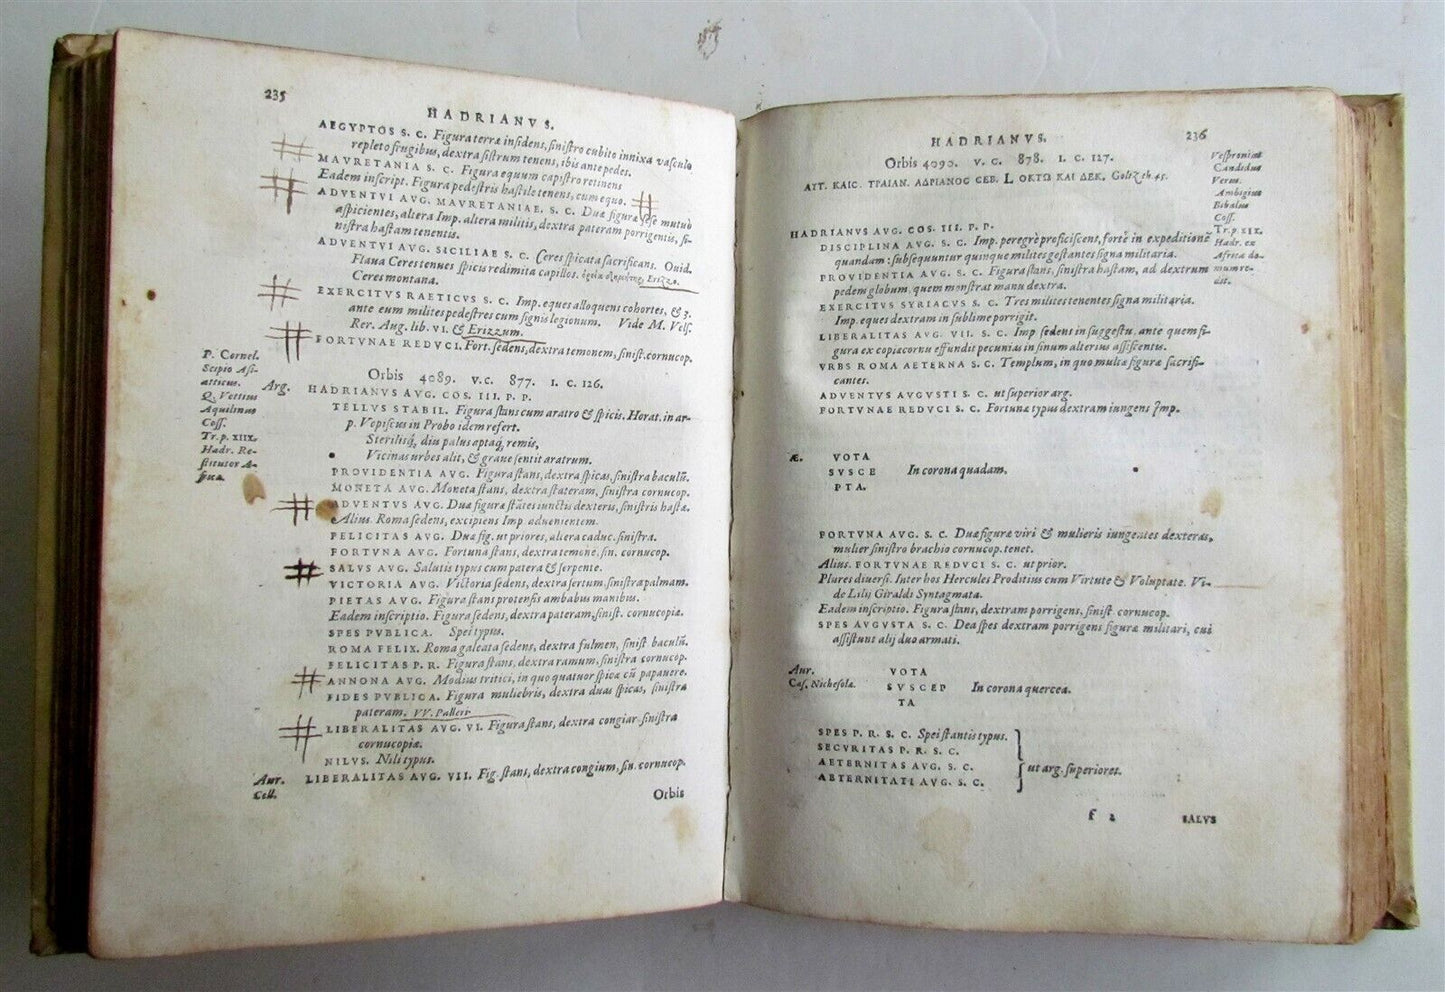 235
HADRIANVS.
AEGYPTOS S. C. Figura terræ insidens, sinistro cubito innixa vasculo
repleto frugibus, dextra sistrum tenens, ibis ante pedes.
MAVRETANIA S. C. Figura equum capistro retinens
Eadem inscript. Figura pedestris hastile tenens, cum equo.
ADVENTVI AVG. MAVRETANIAE. S. C. Duæ figuræ sese mutuò
aspicientes, altera Imp. altera militis, dextra pateram porrigentis, si-
nistra hastam tenentis.
ADVENTVI AVG. SICILIAE S. C. Ceres spicata sacrificans. Ouid.
Flaua Ceres tenues spicis redimita capillos. Erizzo.
Ceres montana.
EXERCITVS RAETICVS S. C. Imp. eques alloquens cohortes, & 3.
ante eum milites pedestres cum signis legionum. Vide M. Vels.
Rer. Aug. lib. VI. & Erizzum.
FORTVNAE REDVCI. Fort. sedens, dextra temonem, sinist. cornucop.
P. Cornel.
Scipio Asi-
aticus.
Q. Vettius
Aquilinus
Coss.
Tr. p. XIIX.
Hadr. Re-
stitutor A-
Orbis 4089. V. C. 877. I. C. 126.
Arg. HADRIANVS AVG. COS. III. P. P.
TELLVS STABIL. Figura stans cum aratro & spicis. Horat. in ar-
p. Vopiscus in Probo idem refert.
Sterilisq́, diu palus aptaq́, remis,
Vicinas urbes alit, & graue sentit aratrum.
PROVIDENTIA AVG. Figura stans, dextra spicas, sinistra baculũ.
MONETA AVG. Moneta stans, dextra stateram, sinistra cornucop.
ADVENTVS AVG. Duæ figuræ stãtes iunctis dexteris, sinistris hastæ.
Alius. Roma sedens, excipiens Imp aduenientem.
FELICITAS AVG. Duæ fig. ut priores, altera caduc. sinistra.
FORTVNA AVG. Fortuna stans, dextra temonẽ, sin. cornucop.
SALVS AVG. Salutis typus cum patera & serpente.
VICTORIA AVG. Victoria sedens, dextra sertum, sinistra palmam.
PIETAS AVG. Figura stans protensis ambabus manibus.
Eadem inscriptio. Figura sedens, dextra pateram, sinist. cornucopiæ.
SPES PVBLICA. Spei typus.
ROMA FELIX. Roma galeata sedens, dextra fulmen, sinist baculũ.
FELICITAS P. R. Figura stans, dextra ramum, sinistra cornucop.
ANNONA AVG. Modius tritici, in quo quatuor spicæ cũ papauere.
FIDES PVBLICA. Figura muliebris, dextra duas spicas, sinistra
pateram. VV. Palleri
LIBERALITAS AVG. VI. Figura stans, dextra congiar. sinistra
cornucopiæ.
NILVS. Nili typus.
Aur. LIBERALITAS AVG. VII. Fig. stans, dextra congium, sin. cornucop.
Cell.
Orbis
HADRIANVS. 236
Orbis 4090. V. C. 878. I. C. 127.
ΑΥΤ. ΚΑΙC. ΤΡΑΙΑΝ. ΑΔΡΙΑΝΟC CΕΒ. L ΟΚΤΩ ΚΑΙ ΔΕΚ. Goltz. th. 45.
Vespronius
Candidus
Verus.
Ambigius
Bibulus
Coss.
Tr. p. XIX.
Hadr. ex
Africa Ro-
mam re-
dit.
HADRIANVS AVG. COS. III. P. P.
DISCIPLINA AVG. S. C. Imp. peregrè proficiscent, fortè in expeditionẽ
quandam: subsequuntur quinque milites gestantes signa militaria.
PROVIDENTIA AVG. S. C. Figura stans, sinistra hastam, ad dextrum
pedem globum, quem monstrat manu dextra.
EXERCITVS SYRIACVS S. C. Tres milites tenentes signa militaria.
Imp. eques dextram in sublime porrigit.
LIBERALITAS AVG. VII. S. C. Imp sedens in suggestu, ante quem fi-
gura ex copiæ cornu effundit pecunias in sinum alterius assistentis.
VRBS ROMA AETERNA S. C. Templum, in quo multæ figuræ sacrifi-
cantes.
ADVENTVS AVGVSTI S. C. ut superior arg.
FORTVNAE REDVCI S. C. Fortunæ typus dextram iungens Imp.
Æ. VOTA
SVSCE In corona quadam.
PTA.
FORTVNA AVG. S. C. Duæ figuræ viri & mulieris iungentes dexteras,
mulier sinistro brachio cornucop. tenet.
Alius. FORTVNAE REDVCI S. C. ut prior.
Plures diuersi. Inter hos Hercules Proditius cum Virtute & Voluptate. Vi-
de Lilij Giraldi Syntagmata.
Eadem inscriptio. Figura stans, dextram porrigens, sinist. cornucop.
SPES AVGVSTA S. C. Dea spes dextram porrigens figuræ militari, cui
assistunt alij duo armati.
Aur. VOTA
Cæs. Nichesola. SVSCEP In corona quercea.
TA
SPES P. R. S. C. Spei stantis typus.
SECVRITAS P. R. S. C.
AETERNITAS AVG. S. C. ut arg. superiores.
AETERNITATI AVG. S. C.
f 2 SALVS